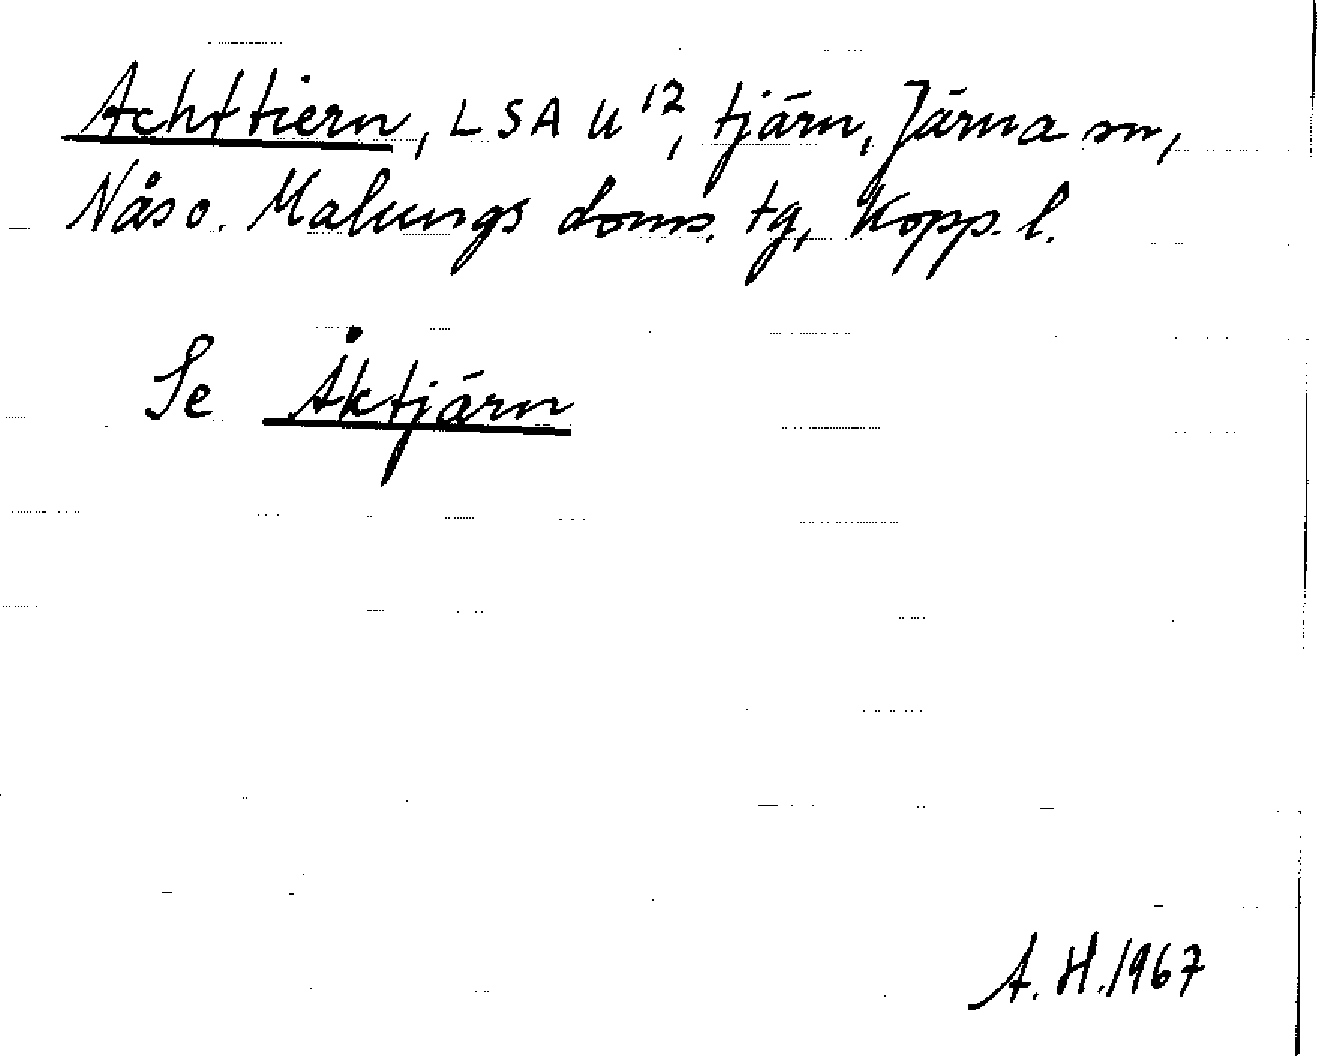 Achttiern, LSA U¹², tjärn, Järna sn,
Nås o. Malungs doms. tg, Kopp. l.
Se Åktjärn
A. H. 1967